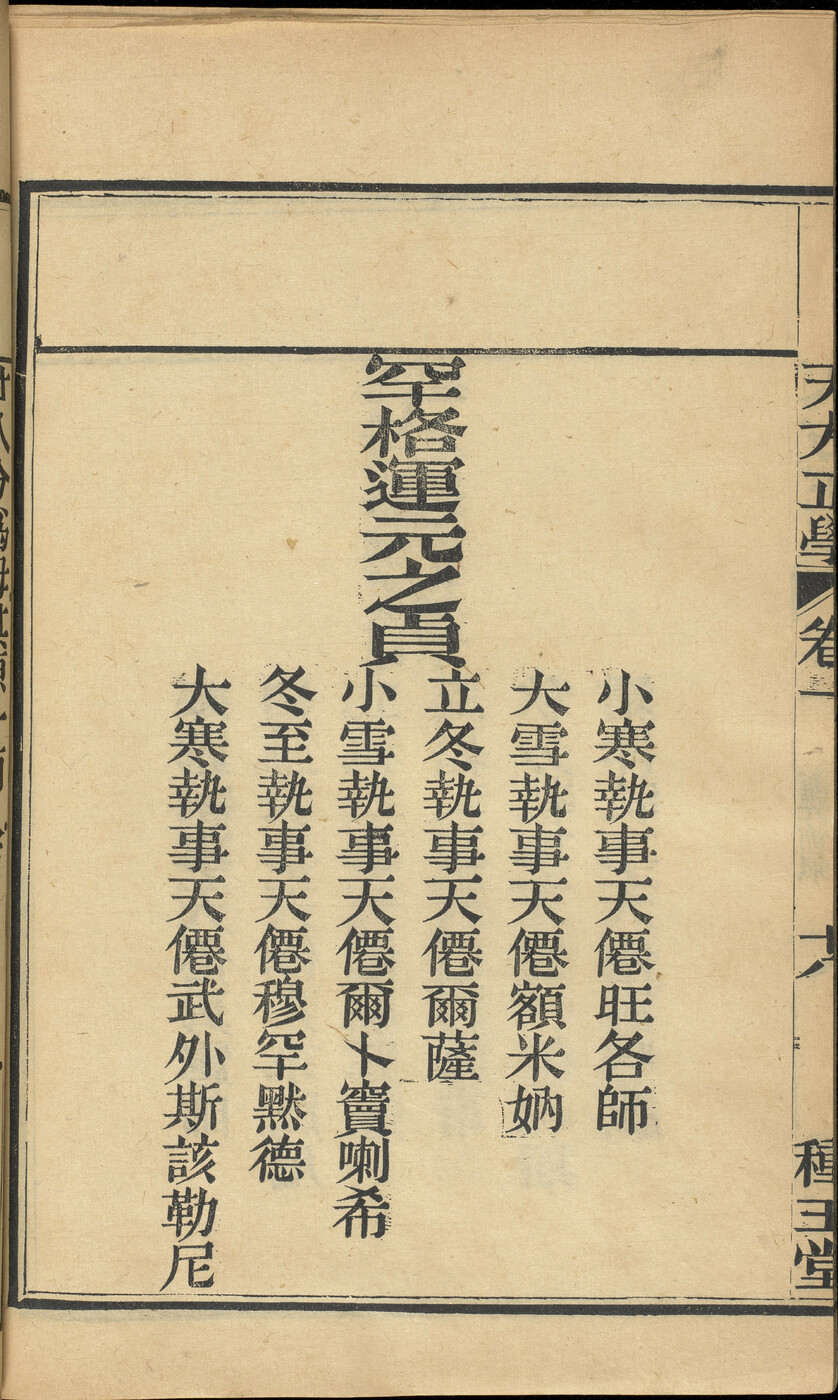 天方正學
卷一
六
種玉堂
小寒執事天僊旺各師
大雪執事天僊額米妠
立冬執事天僊爾薩
空格運元之貞
小雪執事天僊爾卜竇喇希
冬至執事天僊穆罕黙德
大寒執事天僊武外斯該勒尼